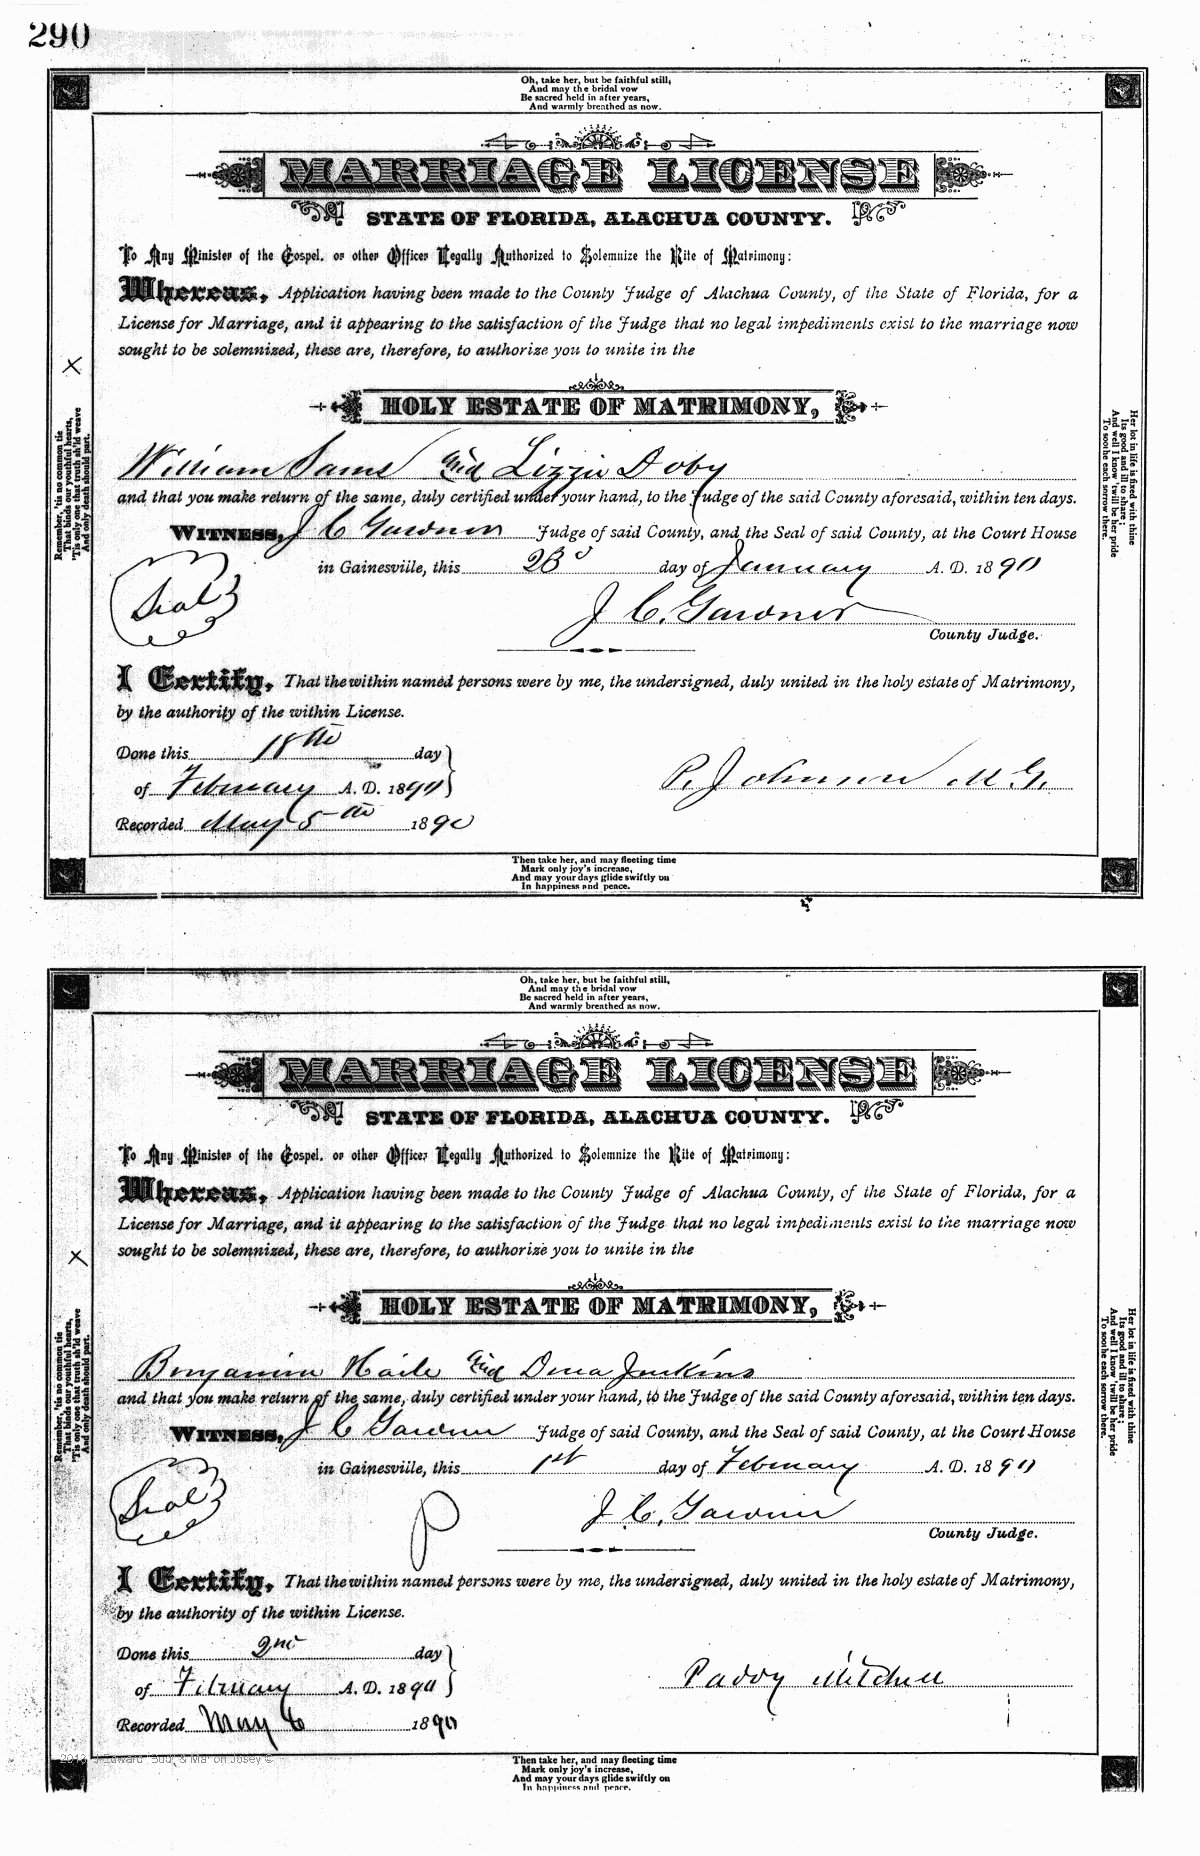 290
Oh, take her, but be faithful still,
And may the bridal vow
Be sacred held in after years,
And warmly breathed as now.
MARRIAGE LICENSE
STATE OF FLORIDA, ALACHUA COUNTY.
To Any Minister of the Gospel, or other Officer Legally Authorized to Solemnize the Rite of Matrimony:
Whereas, Application having been made to the County Judge of Alachua County, of the State of Florida, for a
License for Marriage, and it appearing to the satisfaction of the Judge that no legal impediments exist to the marriage now
sought to be solemnized, these are, therefore, to authorize you to unite in the
X
HOLY ESTATE OF MATRIMONY,
Remember, 'tis no common tie
That binds our youthful hearts,
'Tis only one that truth sh'ld weave
And only death should part.
Her lot in life is fixed with thine
Its good and ill to share;
And well I know 'twill be her pride
To soothe each sorrow there.
William Sams and Lizzie Doby
and that you make return of the same, duly certified under your hand, to the Judge of the said County aforesaid, within ten days.
WITNESS, J C Gardner Judge of said County, and the Seal of said County, at the Court House
in Gainesville, this 23d day of January A. D. 1890
Seal
J. C. Gardner
County Judge.
I Certify, That the within named persons were by me, the undersigned, duly united in the holy estate of Matrimony,
by the authority of the within License.
Done this 18th day
of February A. D. 1890
P. Johnson M. G.
Recorded May 5th 1890
Then take her, and may fleeting time
Mark only joy's increase,
And may your days glide swiftly on
In happiness and peace.
Oh, take her, but be faithful still,
And may the bridal vow
Be sacred held in after years,
And warmly breathed as now.
MARRIAGE LICENSE
STATE OF FLORIDA, ALACHUA COUNTY.
To Any Minister of the Gospel, or other Officer Legally Authorized to Solemnize the Rite of Matrimony:
Whereas, Application having been made to the County Judge of Alachua County, of the State of Florida, for a
License for Marriage, and it appearing to the satisfaction of the Judge that no legal impediments exist to the marriage now
sought to be solemnized, these are, therefore, to authorize you to unite in the
X
HOLY ESTATE OF MATRIMONY,
Remember, 'tis no common tie
That binds our youthful hearts,
'Tis only one that truth sh'ld weave
And only death should part.
Her lot in life is fixed with thine
Its good and ill to share;
And well I know 'twill be her pride
To soothe each sorrow there.
Benjamin Haile and Dena Jenkins
and that you make return of the same, duly certified under your hand, to the Judge of the said County aforesaid, within ten days.
WITNESS, J C Gardner Judge of said County, and the Seal of said County, at the Court House
in Gainesville, this 1st day of February A. D. 1890
Seal
P
J. C. Gardner
County Judge.
I Certify, That the within named persons were by me, the undersigned, duly united in the holy estate of Matrimony,
by the authority of the within License.
Done this 2nd day
of February A. D. 1890
Paddy Mitchell
Recorded May 6 1890
Then take her, and may fleeting time
Mark only joy's increase,
And may your days glide swiftly on
In happiness and peace.